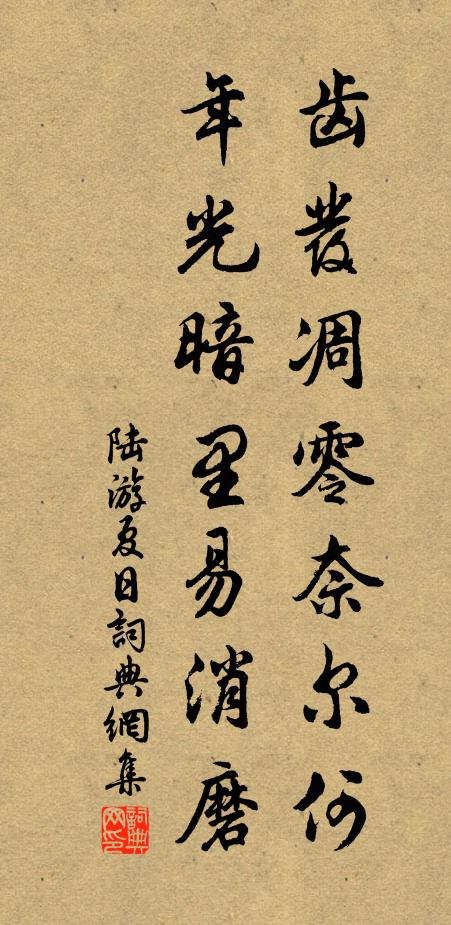 齿發凋零奈尔何
年光暗里易消磨
陆游夏日詞典網集
詞典网印